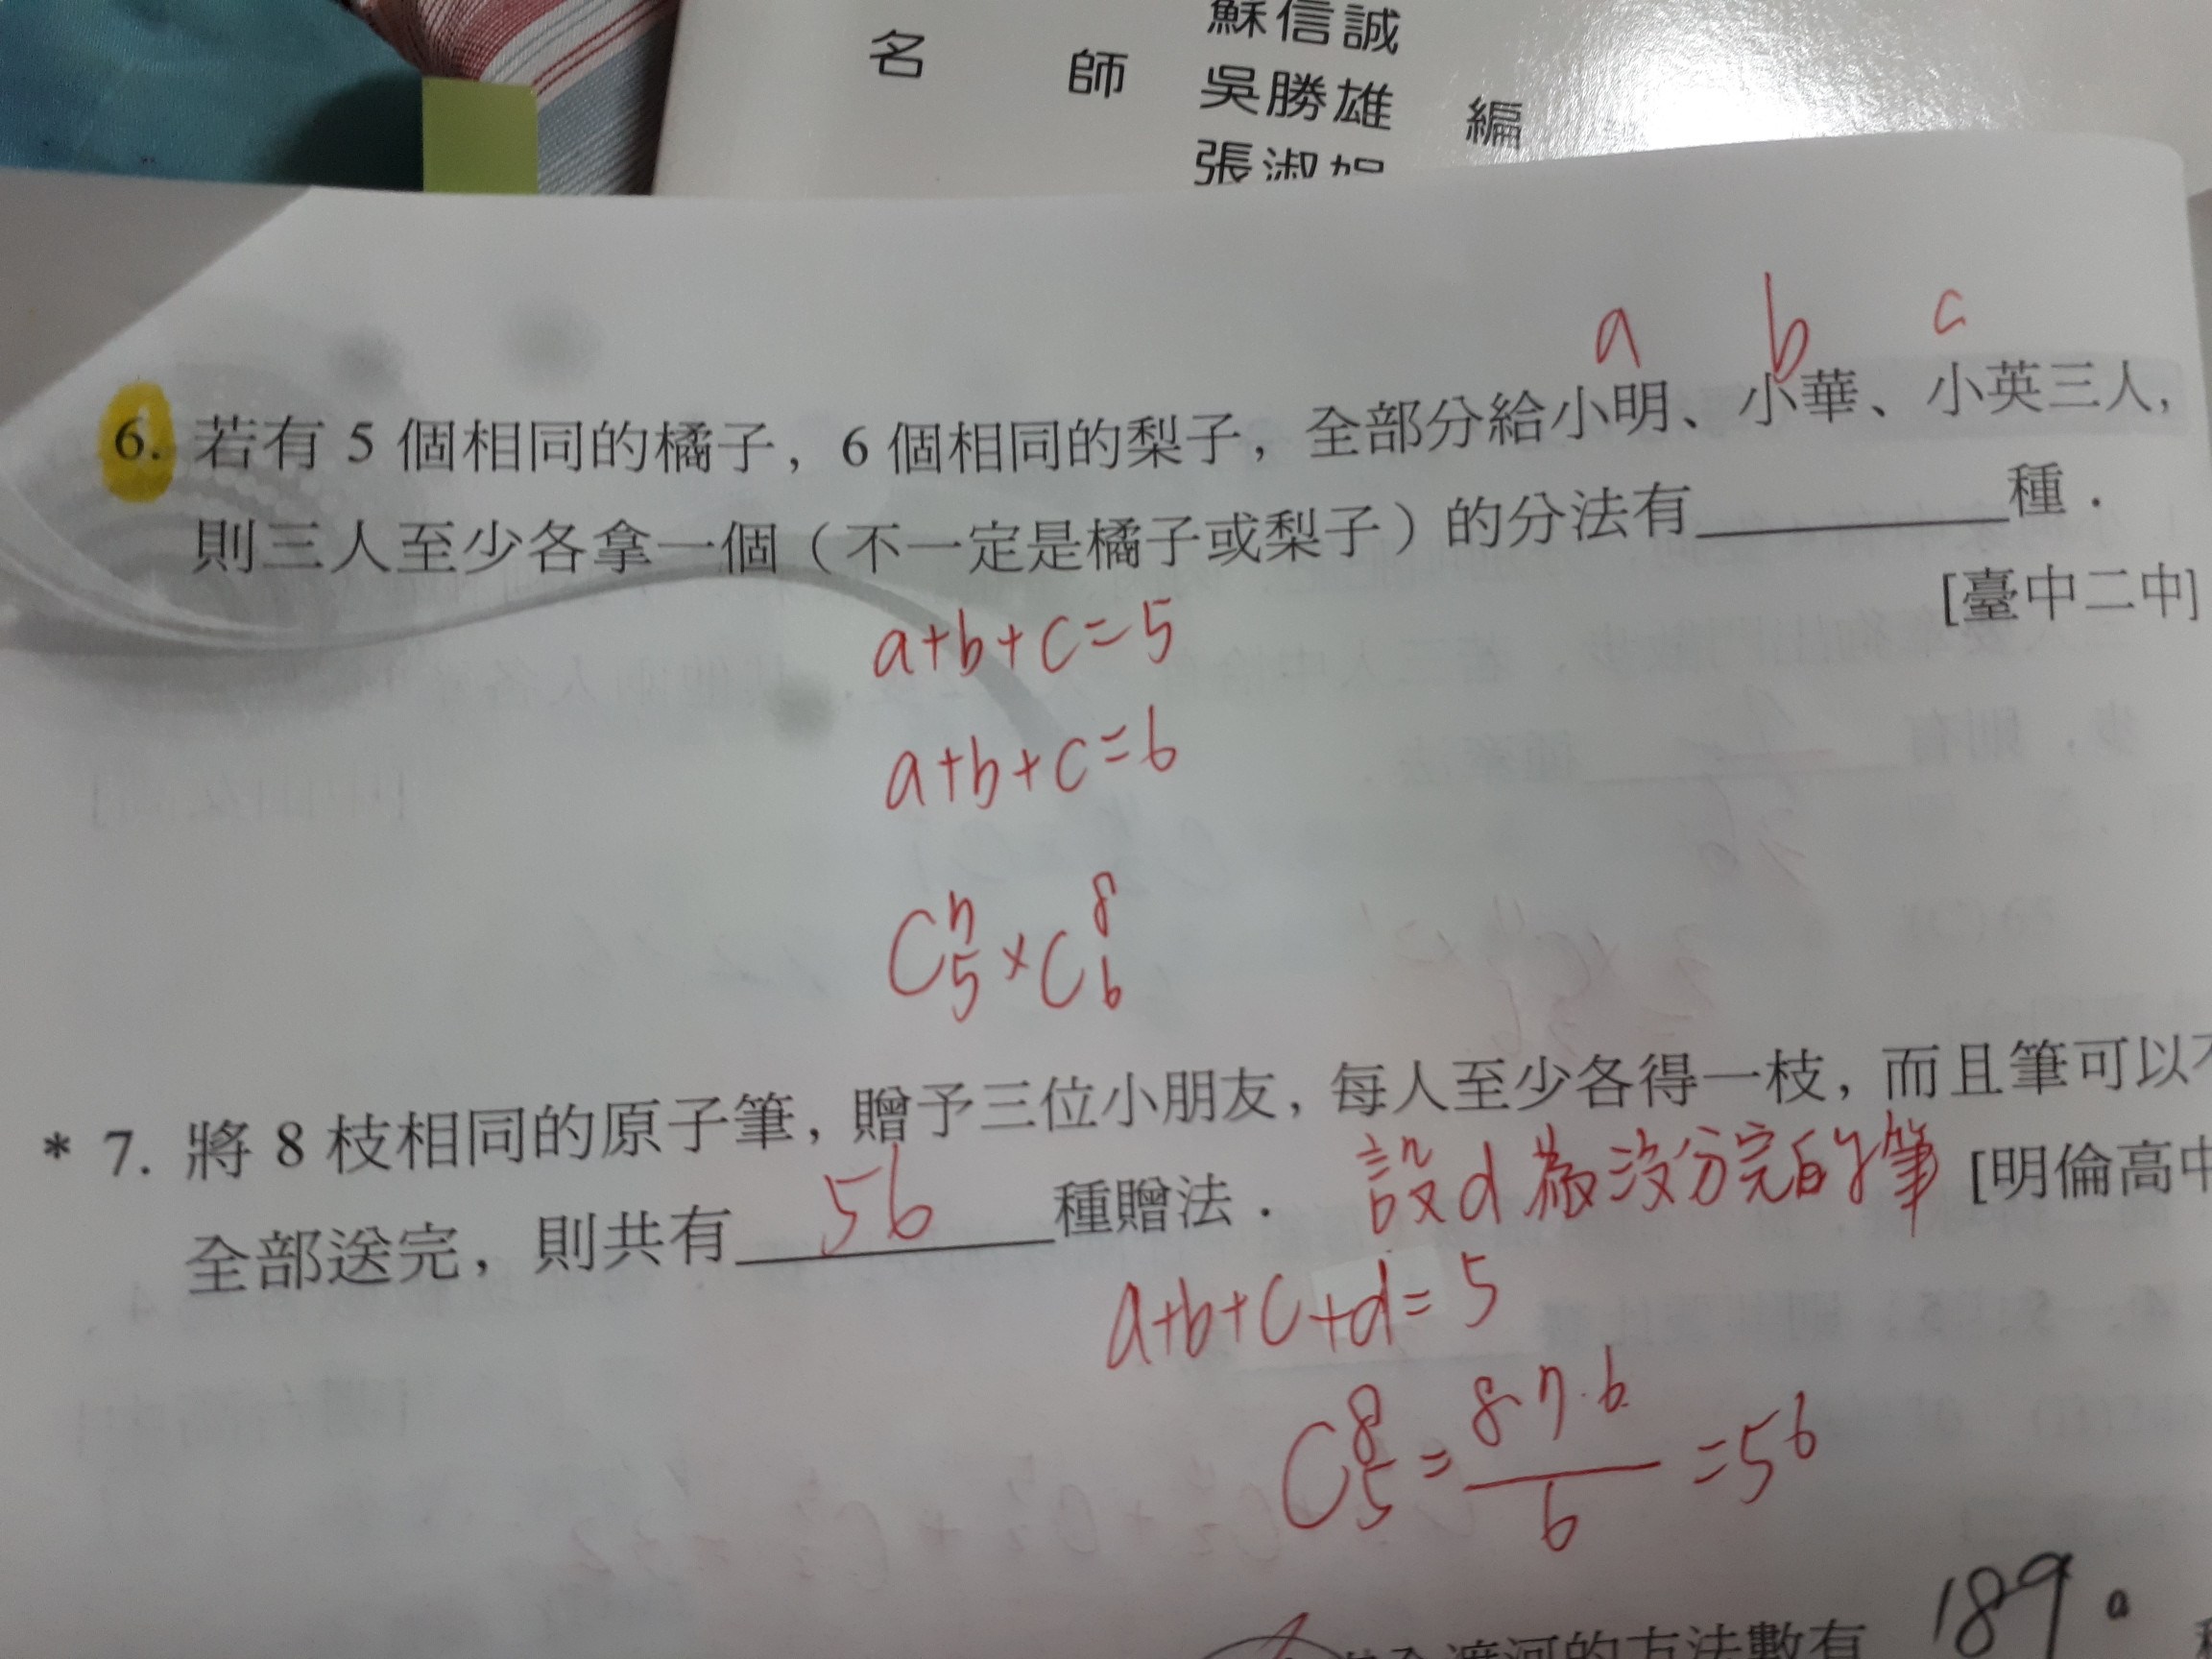 蘇信誠
名 師 吳勝雄 編
張淑
a b c
6. 若有 5 個相同的橘子，6 個相同的梨子，全部分給小明、小華、小英三人，
則三人至少各拿一個（不一定是橘子或梨子）的分法有＿＿＿＿種．
[臺中二中]
a+b+c=5
a+b+c=6
C⁷₅×C⁸₆
* 7. 將 8 枝相同的原子筆，贈予三位小朋友，每人至少各得一枝，而且筆可以
全部送完，則共有 56 種贈法． 設d為沒分完的筆 [明倫高中
a+b+c+d=5
C⁸₅=8·7·6/6=56
渡河的方法數有 189。